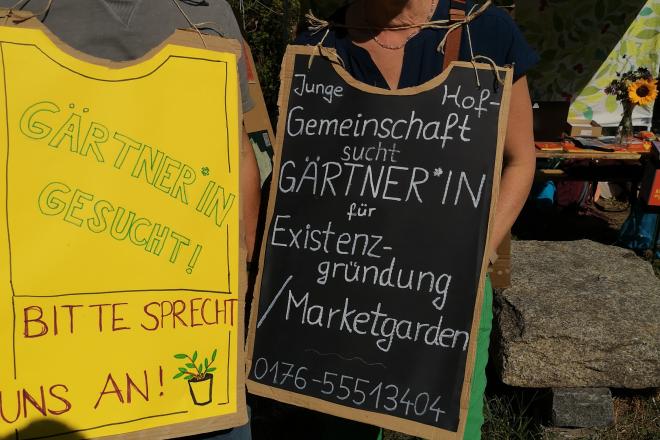 GÄRTNER*IN
GESUCHT!
BITTE SPRECHT
UNS AN!
Junge Hof-
Gemeinschaft
sucht
GÄRTNER*IN
für
Existenz-
gründung
/Marketgarden
0176-55513404